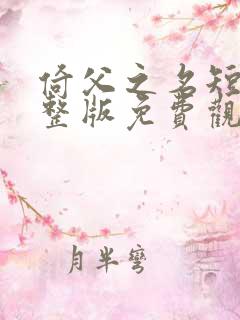 倚父之名短
整版免費觀
月半彎